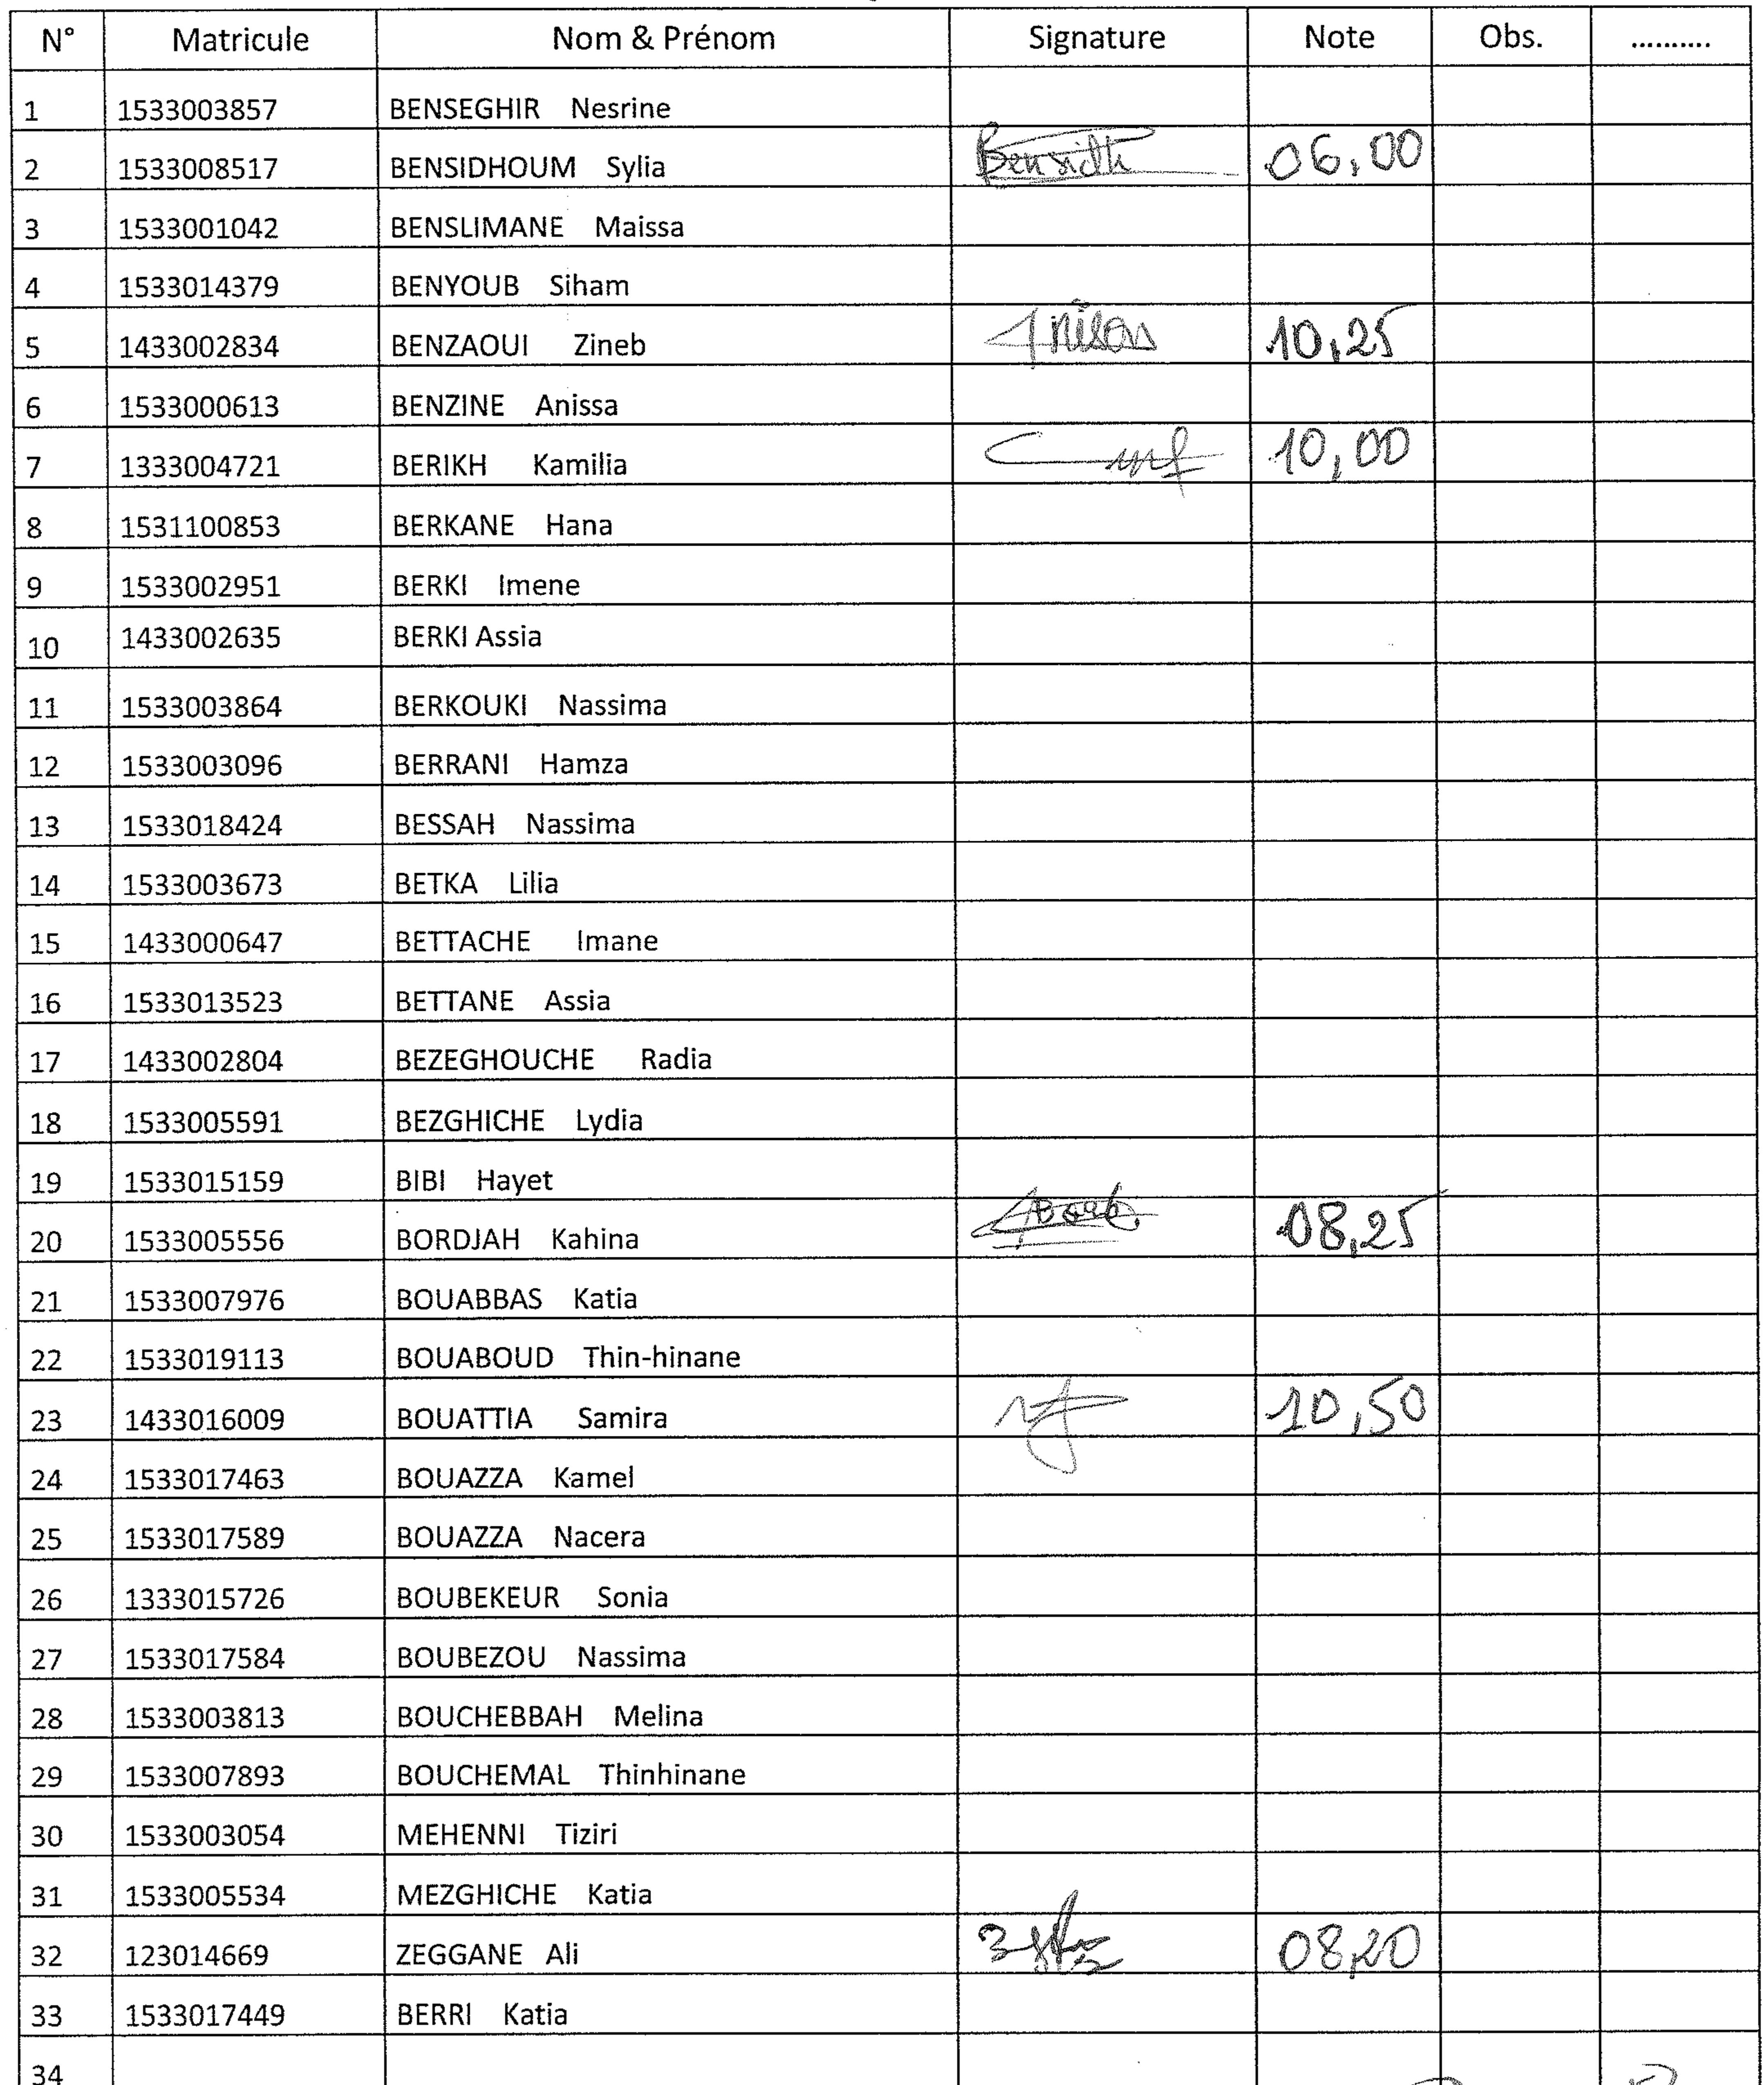 N° Matricule Nom & Prénom Signature Note Obs. ..........
1 1533003857 BENSEGHIR Nesrine
2 1533008517 BENSIDHOUM Sylia Bensidh 06,00
3 1533001042 BENSLIMANE Maissa
4 1533014379 BENYOUB Siham
5 1433002834 BENZAOUI Zineb 10,25
6 1533000613 BENZINE Anissa
7 1333004721 BERIKH Kamilia 10,00
8 1531100853 BERKANE Hana
9 1533002951 BERKI Imene
10 1433002635 BERKI Assia
11 1533003864 BERKOUKI Nassima
12 1533003096 BERRANI Hamza
13 1533018424 BESSAH Nassima
14 1533003673 BETKA Lilia
15 1433000647 BETTACHE Imane
16 1533013523 BETTANE Assia
17 1433002804 BEZEGHOUCHE Radia
18 1533005591 BEZGHICHE Lydia
19 1533015159 BIBI Hayet
20 1533005556 BORDJAH Kahina 08,25
21 1533007976 BOUABBAS Katia
22 1533019113 BOUABOUD Thin-hinane
23 1433016009 BOUATTIA Samira 10,50
24 1533017463 BOUAZZA Kamel
25 1533017589 BOUAZZA Nacera
26 1333015726 BOUBEKEUR Sonia
27 1533017584 BOUBEZOU Nassima
28 1533003813 BOUCHEBBAH Melina
29 1533007893 BOUCHEMAL Thinhinane
30 1533003054 MEHENNI Tiziri
31 1533005534 MEZGHICHE Katia
32 123014669 ZEGGANE Ali 08,20
33 1533017449 BERRI Katia
34